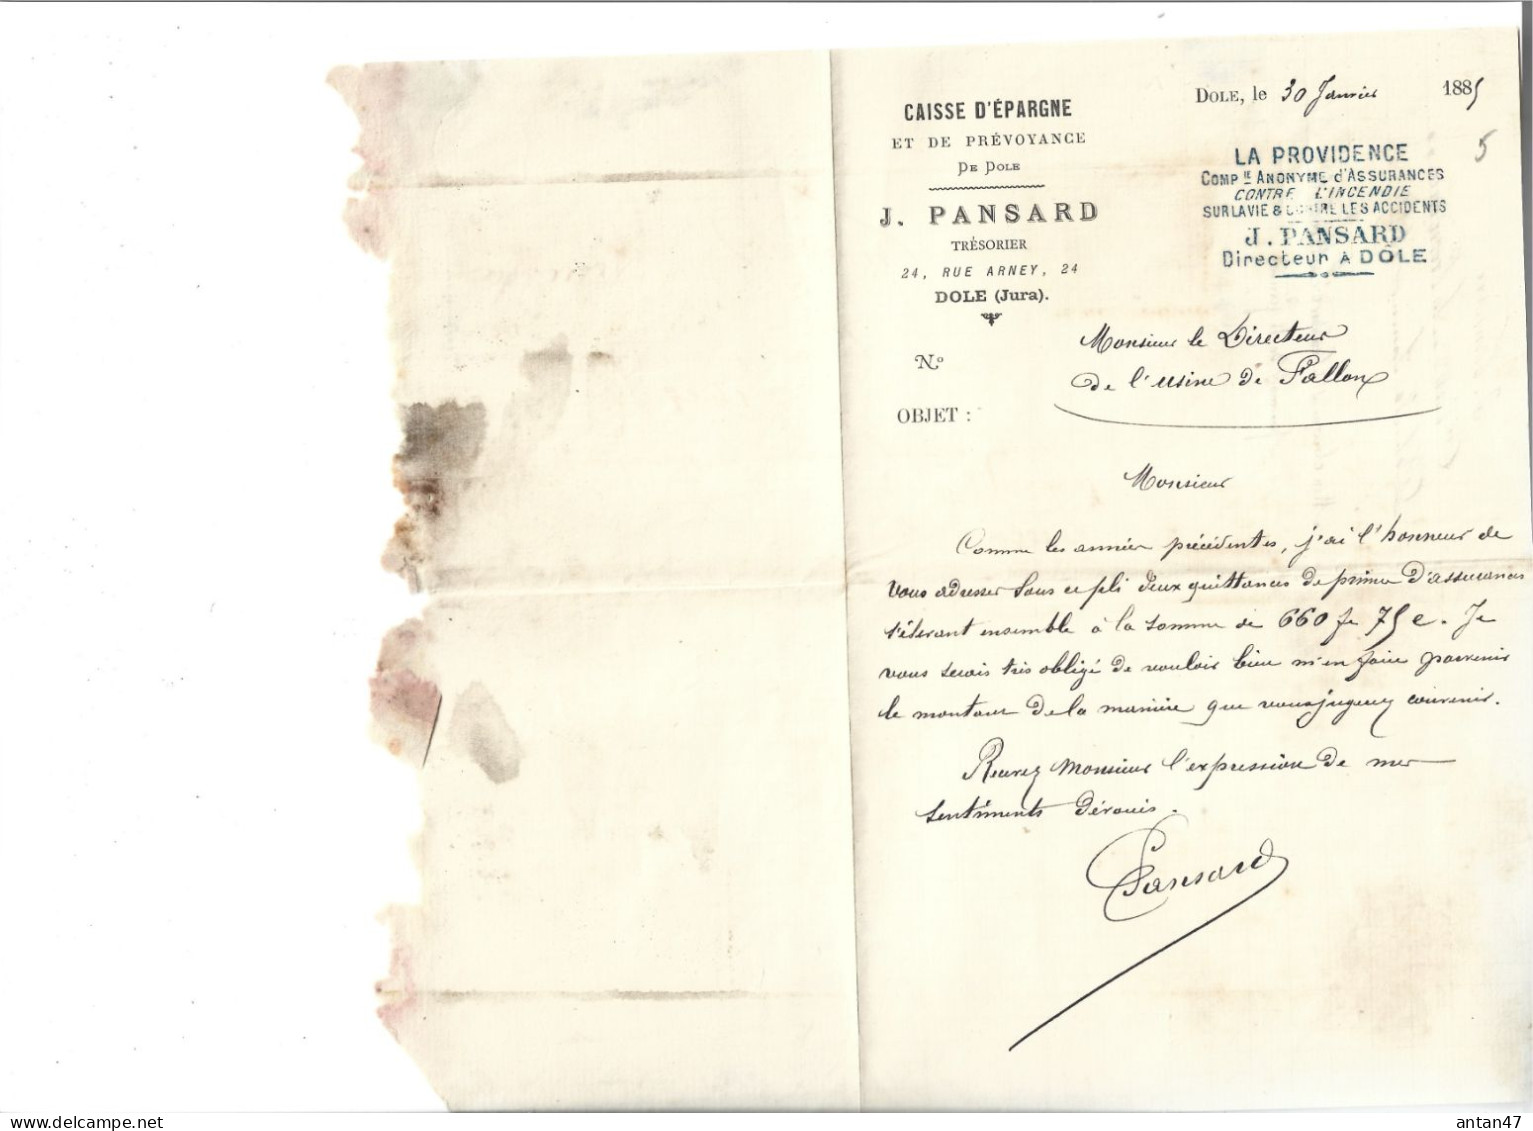 CAISSE D'ÉPARGNE
ET DE PRÉVOYANCE
DE DOLE
J. PANSARD
TRÉSORIER
24, RUE ARNEY, 24
DOLE (Jura).
DOLE, le 30 Janvier 1885
5
LA PROVIDENCE
COMP IE ANONYME d'ASSURANCES
CONTRE L'INCENDIE
SUR LA VIE & CONTRE LES ACCIDENTS
J. PANSARD
Directeur A DÔLE
N°
OBJET :
Monsieur le Directeur
de l'usine de Fallon
Monsieur
Comme les années précédentes, j'ai l'honneur de
vous adresser sous ce pli deux quittances de prime d'assurances
s'élevant ensemble à la somme de 660 fr 75 c. Je
vous serais très obligé de vouloir bien m'en faire parvenir
le montant de la manière que vous jugerez convenir.
Recevez Monsieur l'expression de mes
sentiments dévoués.
Pansard
antan47